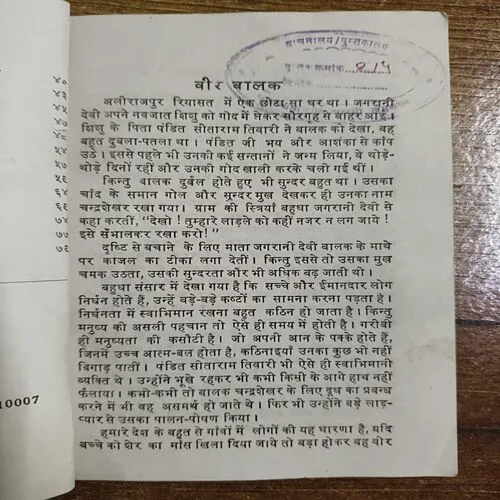 वाचनालय/पुस्तकालय
क्रमांक 815
वीर बालक
अलीराजपुर रियासत में एक छोटा सा घर था। जगरानी
देवी अपने नवजात शिशु को गोद में लेकर सौरगृह से बाहर आईं।
शिशु के पिता पंडित सीताराम तिवारी ने बालक को देखा, वह
बहुत दुबला-पतला था। पंडित जी भय और आशंका से काँप
उठे। इससे पहले भी उनकी कई सन्तानों ने जन्म लिया, वे थोड़े-
थोड़े दिनों रहीं और उनकी गोद खाली करके चली गई थीं।
किन्तु बालक दुर्बल होते हुए भी सुन्दर बहुत था। उसका
चाँद के समान गोल और सुन्दर मुख देखकर ही उनका नाम
चन्द्रशेखर रखा गया। ग्राम की स्त्रियाँ बहुधा जगरानी देवी से
कहा करतीं, "देखो! तुम्हारे लाड़ले को कहीं नजर न लग जाये!
इसे सँभालकर रखा करो!"
दृष्टि से बचाने के लिए माता जगरानी देवी बालक के माथे
पर काजल का टीका लगा देतीं। किन्तु इससे तो उसका मुख
चमक उठता, उसकी सुन्दरता और भी अधिक बढ़ जाती थी।
बहुधा संसार में देखा गया है कि सच्चे और ईमानदार लोग
निर्धन होते हैं, उन्हें बड़े-बड़े कष्टों का सामना करना पड़ता है।
निर्धनता में स्वाभिमान रखना बहुत कठिन हो जाता है। किन्तु
मनुष्य की असली पहचान तो ऐसे ही समय में होती है। गरीबी
ही मनुष्यता की कसौटी है। जो अपनी आन के पक्के होते हैं,
जिनमें उच्च आत्म-बल होता है, कठिनाइयाँ उनका कुछ भी नहीं
बिगाड़ पातीं। पंडित सीताराम तिवारी भी ऐसे ही स्वाभिमानी
व्यक्ति थे। उन्होंने भूखे रहकर भी कभी किसी के आगे हाथ नहीं
फैलाया। कभी-कभी तो बालक चन्द्रशेखर के लिए दूध का प्रबन्ध
करने में भी वह असमर्थ हो जाते थे। फिर भी उन्होंने बड़े लाड़-
प्यार से उसका पालन-पोषण किया।
हमारे देश के बहुत से गांवों में लोगों की यह धारणा है, यदि
बच्चे को शेर का माँस खिला दिया जाये तो बड़ा होकर वह वीर
४०
४५
५४
५८
६४
६९
७४
७७
७९
10007